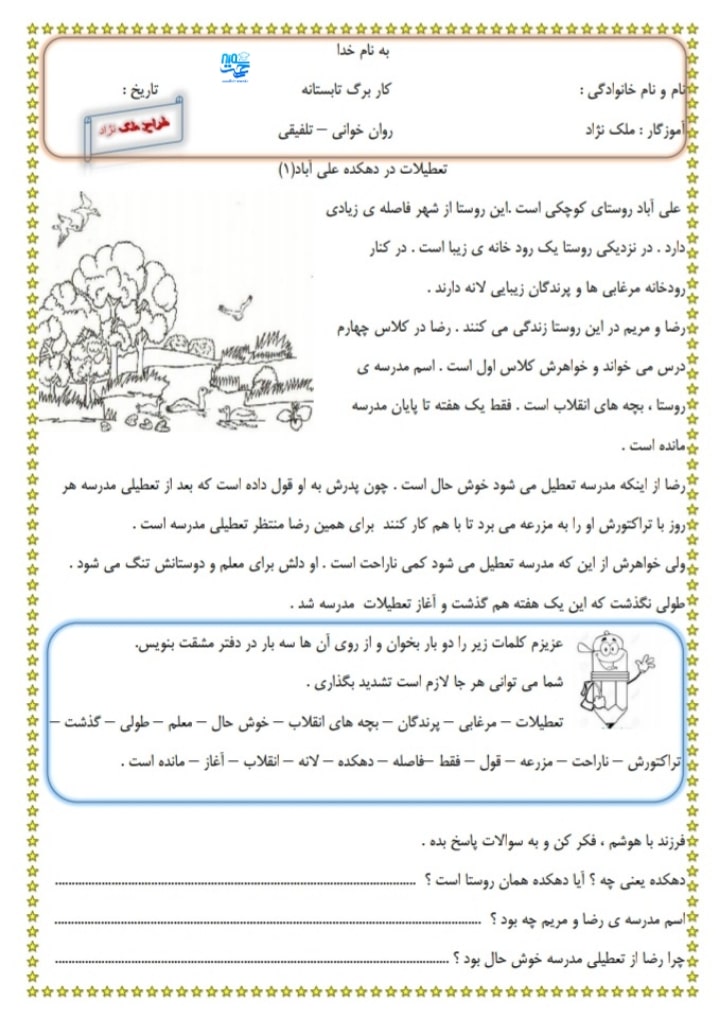 به نام خدا
نام و نام خانوادگی :
کار برگ تابستانه
تاریخ :
آموزگار : ملک نژاد
روان خوانی – تلفیقی
طراح: ملک نژاد
تعطیلات در دهکده علی آباد(۱)
علی آباد روستای کوچکی است .این روستا از شهر فاصله ی زیادی
دارد . در نزدیکی روستا یک رود خانه ی زیبا است . در کنار
رودخانه مرغابی ها و پرندگان زیبایی لانه دارند .
رضا و مریم در این روستا زندگی می کنند . رضا در کلاس چهارم
درس می خواند و خواهرش کلاس اول است . اسم مدرسه ی
روستا ، بچه های انقلاب است . فقط یک هفته تا پایان مدرسه
مانده است .
رضا از اینکه مدرسه تعطیل می شود خوش حال است . چون پدرش به او قول داده است که بعد از تعطیلی مدرسه هر
روز با تراکتورش او را به مزرعه می برد تا با هم کار کنند برای همین رضا منتظر تعطیلی مدرسه است .
ولی خواهرش از این که مدرسه تعطیل می شود کمی ناراحت است . او دلش برای معلم و دوستانش تنگ می شود .
طولی نگذشت که این یک هفته هم گذشت و آغاز تعطیلات مدرسه شد .
عزیزم کلمات زیر را دو بار بخوان و از روی آن ها سه بار در دفتر مشقت بنویس.
شما می توانی هر جا لازم است تشدید بگذاری .
تعطیلات – مرغابی – پرندگان – بچه های انقلاب – خوش حال – معلم – طولی – گذشت –
تراکتورش – ناراحت – مزرعه – قول – فقط –فاصله – دهکده – لانه – انقلاب – آغاز – مانده است .
فرزند با هوشم ، فکر کن و به سوالات پاسخ بده .
دهکده یعنی چه ؟ آیا دهکده همان روستا است ؟ ..........................................................................
اسم مدرسه ی رضا و مریم چه بود ؟ ..........................................................................
چرا رضا از تعطیلی مدرسه خوش حال بود ؟ ..........................................................................